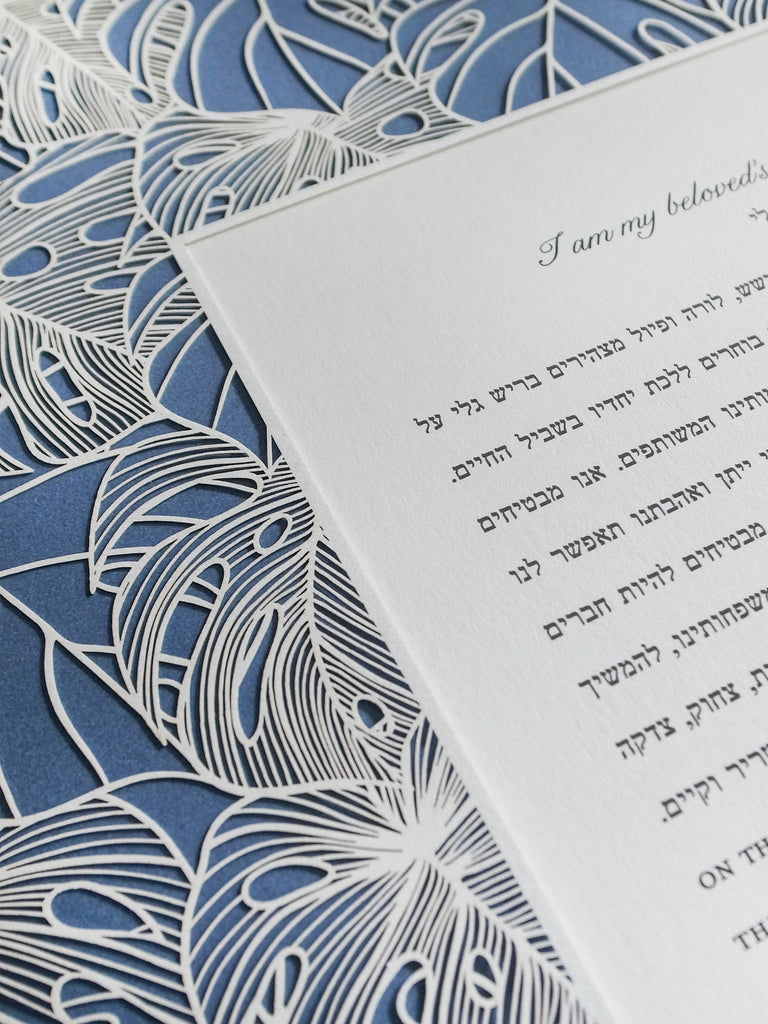 I am my beloved's
לי
לורה ופיול מצהירים בריש גלי על
בוחרים ללכת יחדיו בשביל החיים.
המשותפים. אנו מבטיחים
ייתן ואהבתנו תאפשר לנו
מבטיחים להיות חברים
משפחותינו, להמשיך
צחוק, צדקה
שריר וקיים.
ON TH
THE